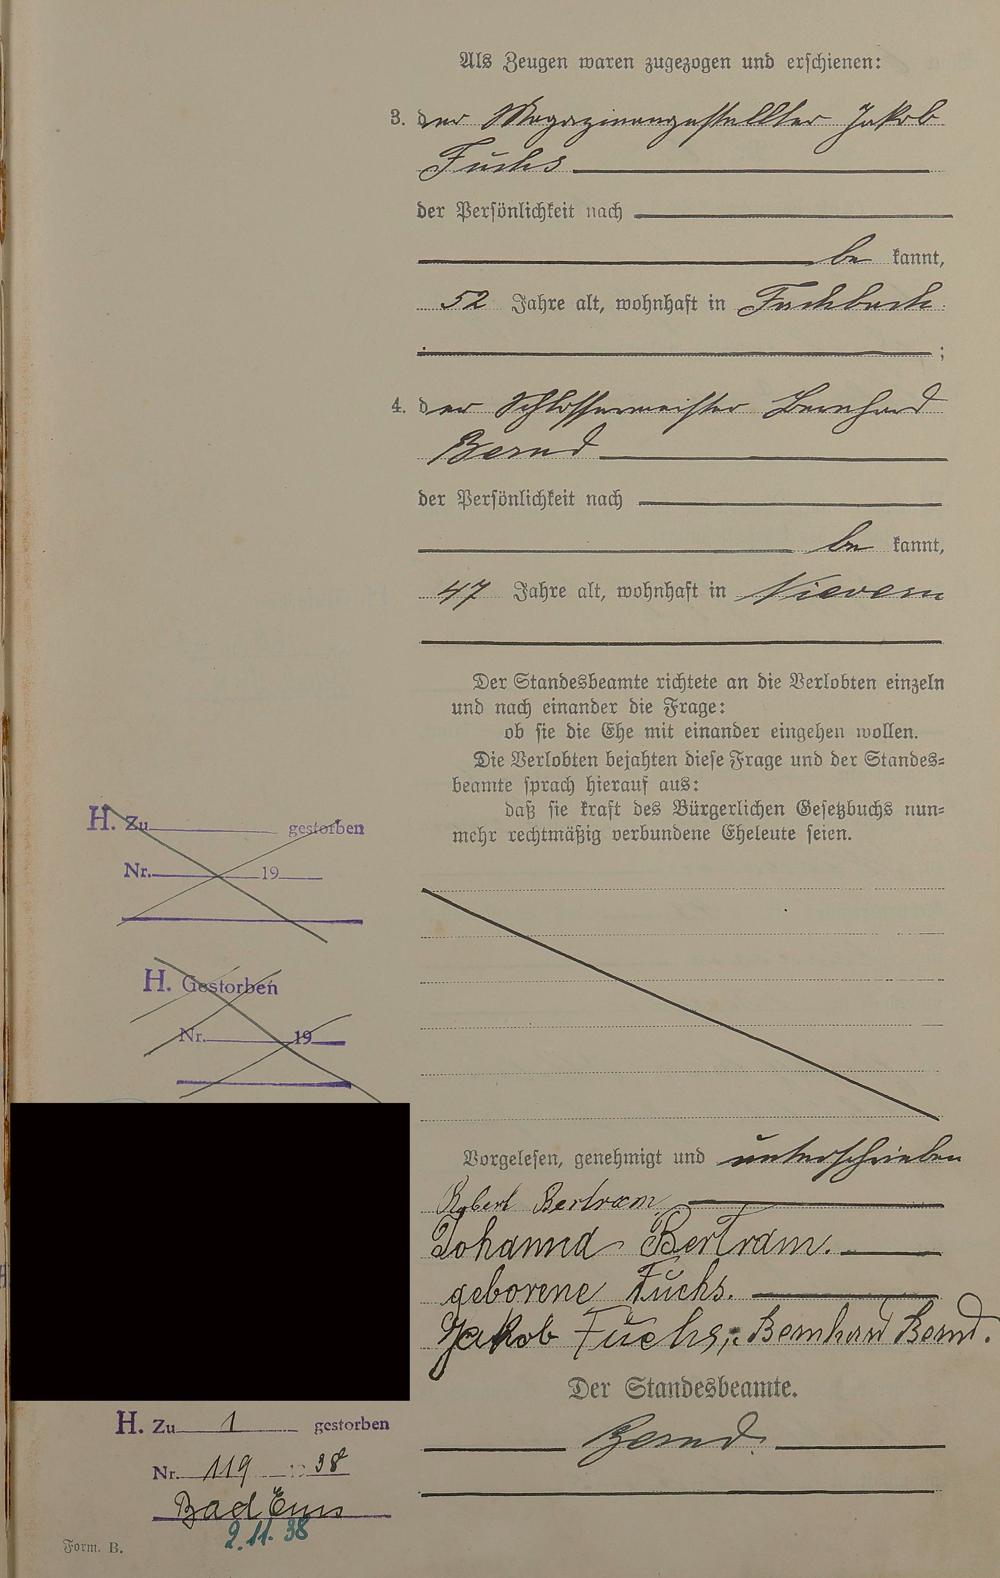 Als Zeugen waren zugezogen und erschienen:
3. der Magazinangestellter Jakob
Fuchs
der Persönlichkeit nach
be kannt,
52 Jahre alt, wohnhaft in Fachbach
;
4. der Schlossermeister Bernhard
Bernd
der Persönlichkeit nach
be kannt,
47 Jahre alt, wohnhaft in Nievern
Der Standesbeamte richtete an die Verlobten einzeln
und nach einander die Frage:
ob sie die Ehe mit einander eingehen wollen.
Die Verlobten bejahten diese Frage und der Standes=
beamte sprach hierauf aus:
daß sie kraft des Bürgerlichen Gesetzbuchs nun=
mehr rechtmäßig verbundene Eheleute seien.
H. Zu gestorben
Nr. 19
H. Gestorben
Nr. 19
Vorgelesen, genehmigt und unterschrieben
Robert Bertram
Johanna Bertram.
geborene Fuchs.
Jakob Fuchs, Bernhard Bernd.
Der Standesbeamte.
Bernd.
H. Zu 1 gestorben
Nr. 119 38
Bad Ems
2.11.38
Form. B.